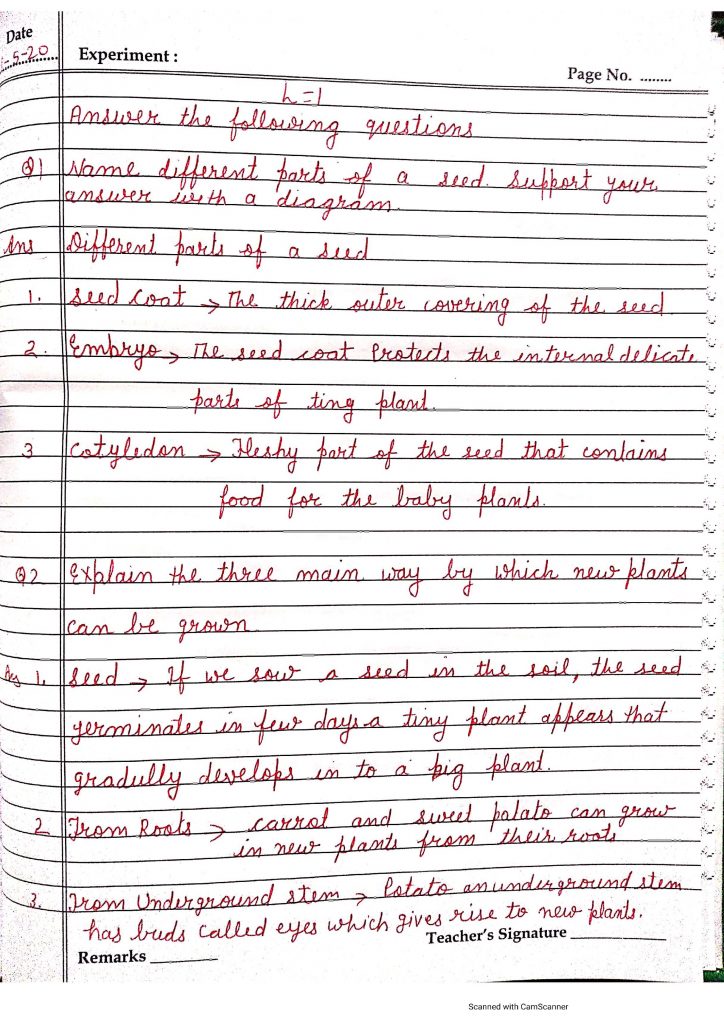 Date
-5-20
Experiment :
Page No. ........
L=1
Answer the following questions
Q1 Name different parts of a seed. Support your
answer with a diagram.
Ans Different parts of a seed
1. Seed Coat → The thick outer covering of the seed
2. Embryo → The seed coat Protects the internal delicate
parts of ting plant.
3 Cotyledon → Fleshy part of the seed that contains
food for the baby plants.
Q2 Explain the three main way by which new plants
can be grown
1. Seed → If we sow a seed in the soil, the seed
germinates in few days a tiny plant appears that
gradully develops in to a big plant.
2 From Roots → carrot and sweet potato can grow
in new plants from their roots
3. From Underground stem → Potato an underground stem
has buds called eyes which gives rise to new plants.
Teacher's Signature
Remarks
Scanned with CamScanner